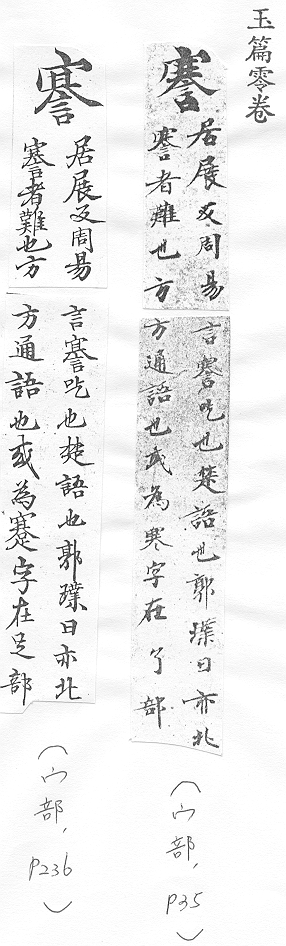 玉篇零卷
謇
居展反周易
謇者難也方
言謇吃也楚語也郭璞曰亦北
方通語也或為寋字在了部
(宀部, P35)
謇
居展反周易
謇者難也方
言謇吃也楚語也郭璞曰亦北
方通語也或為蹇字在足部
(宀部, P236)